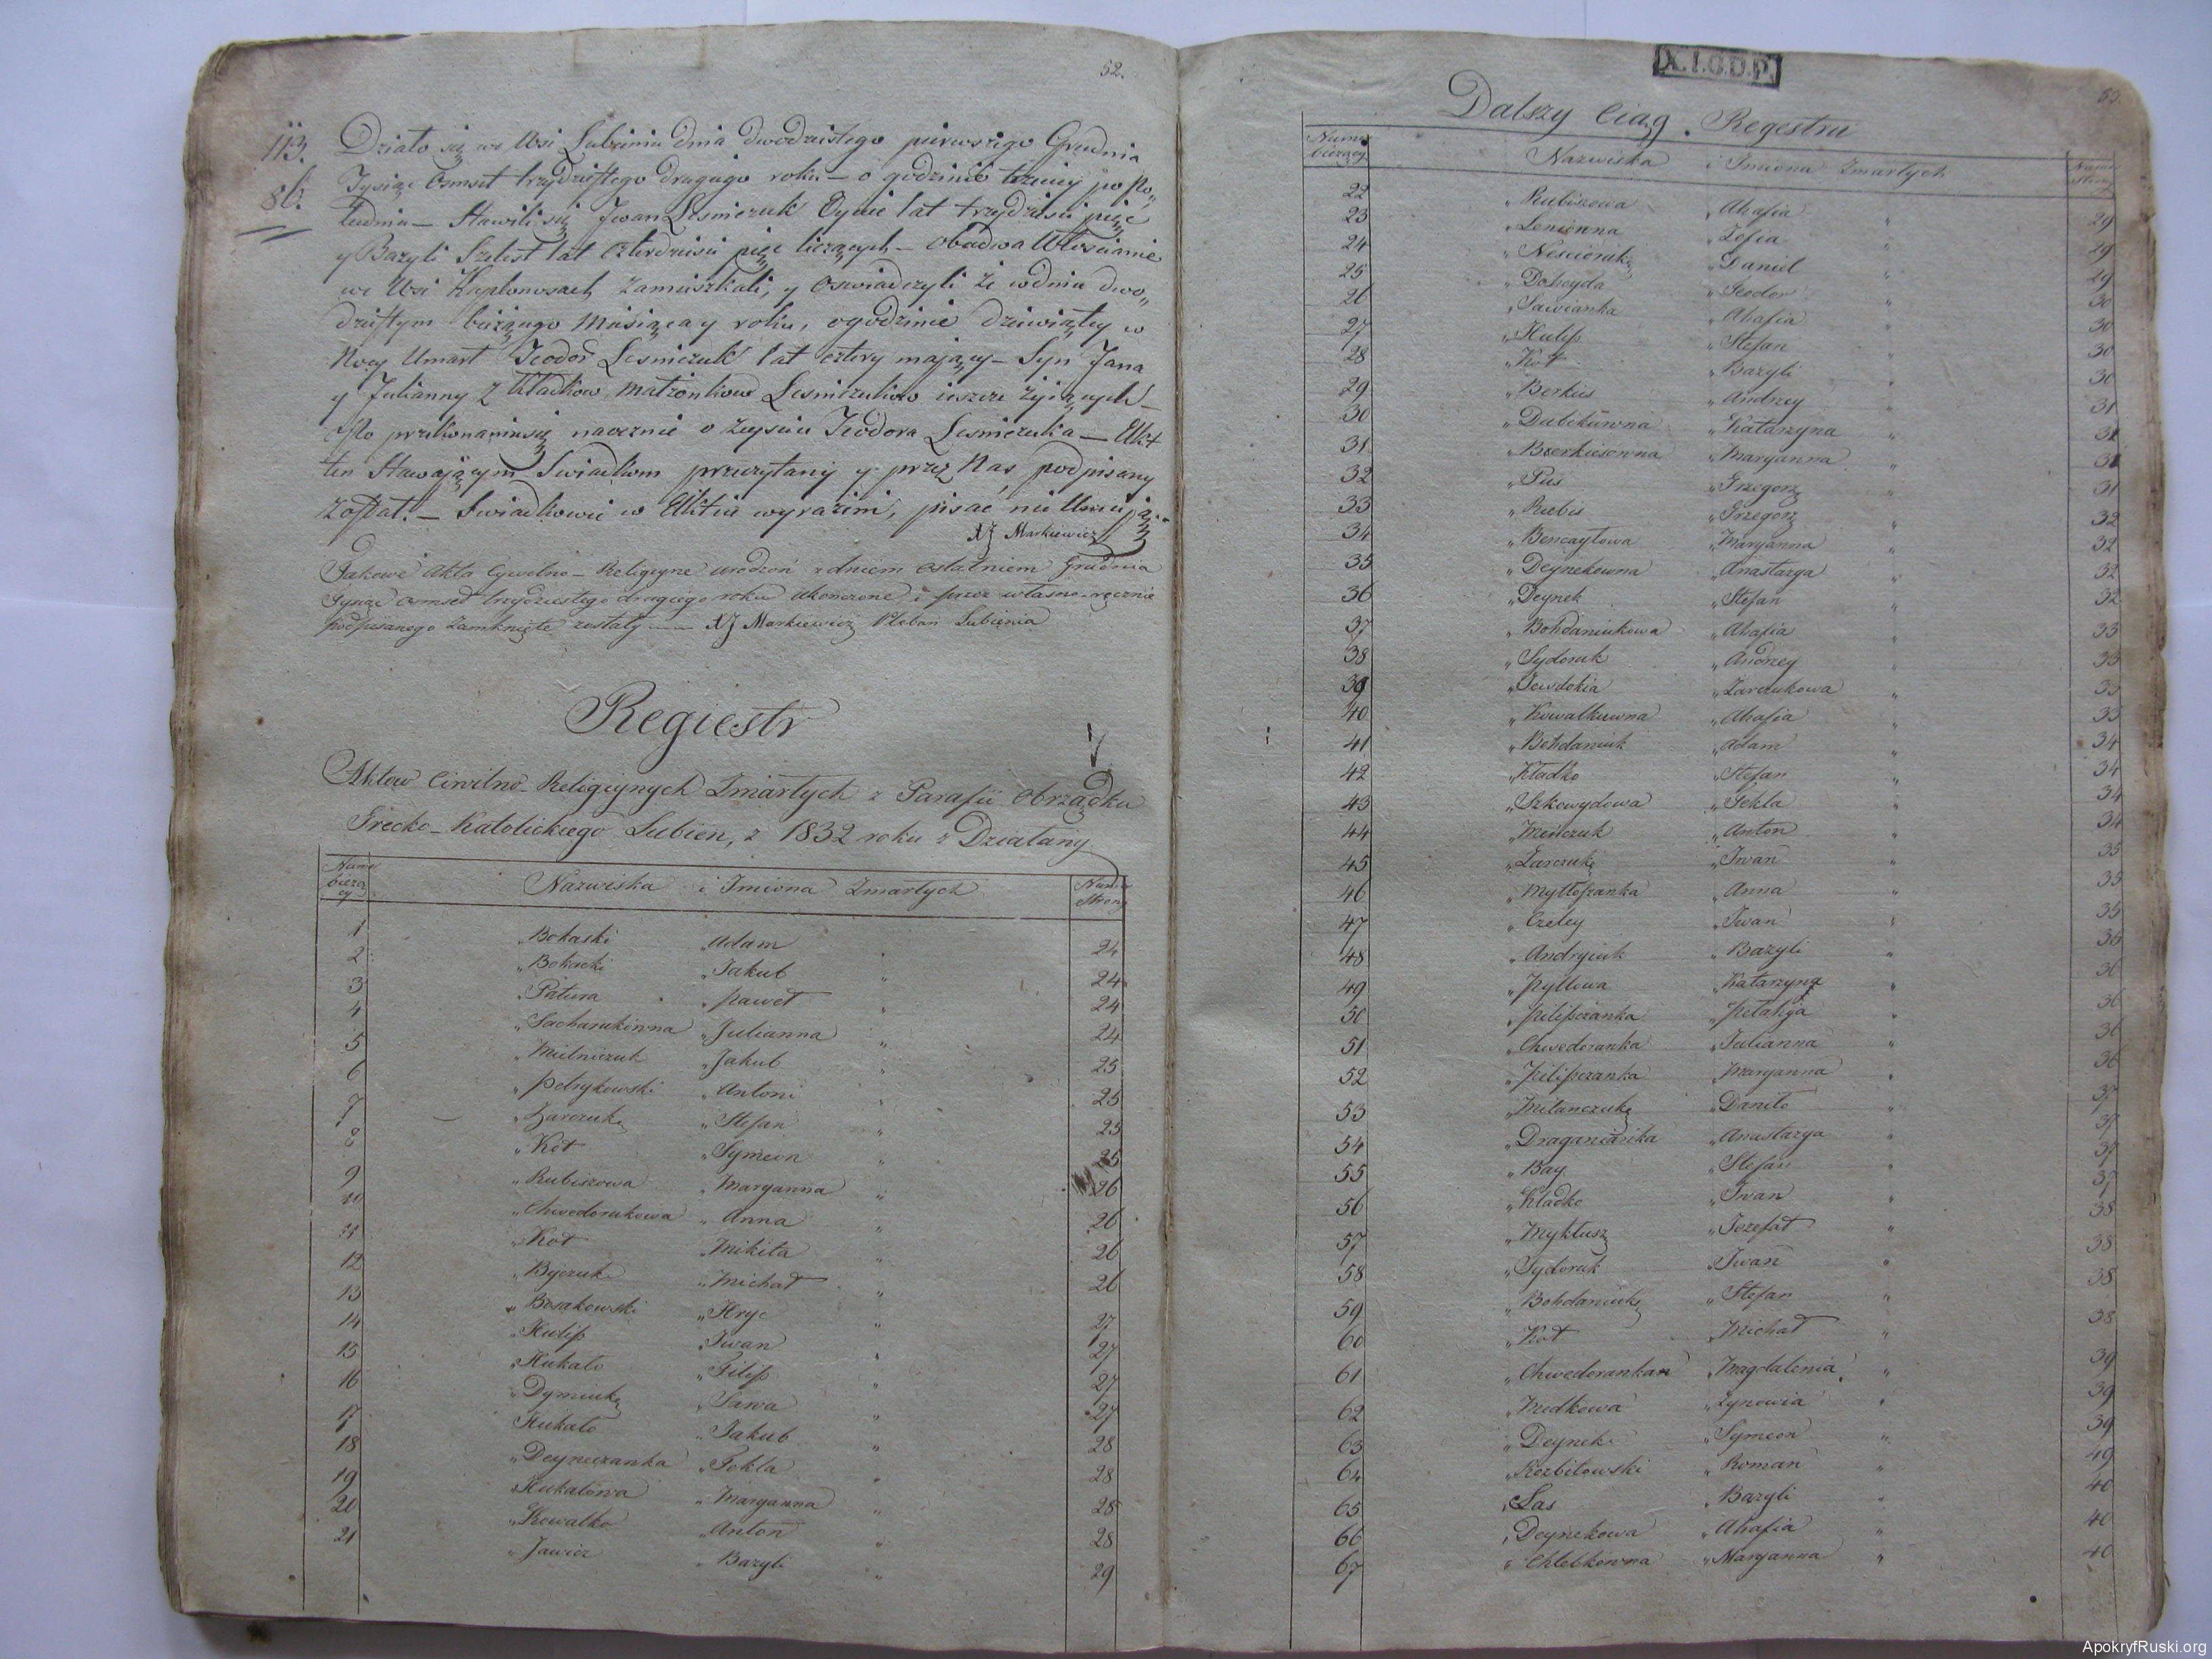 52.
113.
86.
Działo się we Wsi Lubieniu dnia dwodziestego pierwszego Grudnia
Tysiąc Osmset trzydziestego drugiego roku — o godzinie trzeciy po Po„
łudniu — Stawili się Jwan Lesniczuk Oyciec lat trzydzieści pięć
y Bazyli Szelest lat czterdziesci pięc liczących — obadwa Włoscianie
we Wsi Kaplonosach zamieszkali, y oswiadczyli iż wdniu dwo„
dziestym bieżącego Miesiąca y roku, o godzinie dziewiątey w
Nocy Umarł Teodor Lesniczuk lat cztery maiący — Syn Jana
y Julianny z Kładkow małżonkow Lesniczukow ieszcze żyiących —
Po przekonaniu się naocznie o zeysciu Teodora Lesniczuka — Akt
ten Stawaiącym Swiadkom przeczytany y przez Nas podpisany
został. — Swiadkowie w Akcie wyrażeni, pisać nie Umieią.
XJ Markiewicz
Jakowe Akta Cywilno — Religiyne urodzeń z dniem ostatniem Grudnia
Tysiąc osmset trzydziestego drugiego roku ukończone i przez własno-ręcznie
podpisanego zamknięte zostały —— XJ Markiewicz Pleban Lubienia
Regiestr
Aktow Civilno-Religiynych Zmarłych z Parafii obrządku
Grecko-Katolickiego Lubien, z 1832 roku z Działany
Nume bieżą cy Nazwiska i Imiona Zmarłych Num Strony
1 „Bohaski „Adam „ 24
2 „Bohacki „Jakub „ 24
3 „Patura „Paweł „ 24
4 „Sacharukowna „Julianna „ 24
5 „Mielniczuk „Jakub „ 25
6 „Petrykowski „Antoni „ 25
7 „Zarczuk „Stefan „ 25
8 „Kot „Symeon „ 25
9 „Rubiszowa „Maryanna „ 26
10 „Chwedorukowa „Anna „ 26
11 „Kot „Mikita „ 26
12 „Byczuk „Michał „ 26
13 „Bosakowski „Hryc „ 27
14 „Kulip „Jwan „ 27
15 „Hukało „Filip „ 27
16 „Dymiuk „Sawa „ 27
17 Hukało „Jakub „ 28
18 „Deyneczanka „Tekla „ 28
19 Hukałowa „Maryanna „ 28
20 „Kowalko „Anton „ 28
21 „Jawicz „Bazyli „ 29
X.I.G.D.P.
53.
Dalszy Ciąg. Regestru
Nume bieżący Nazwiska i Imiona Zmarłych Num Strony
22 „Rubiszowa „Ahafia „ 29
23 „Leniowna „Zofia „ 29
24 „Nesciorak „Daniel „ 29
25 „Dołheyda „Teodor „ 30
26 „Sawianka „Ahafia „ 30
27 „Kulip „Stefan „ 30
28 „Kot „Bazyli „ 30
29 „Berkus „Andrzey „ 31
30 „Dubikowna „Katarzyna „ 31
31 „Bzerkiesowna „Maryanna „ 31
32 „Pus „Grzegorz „ 31
33 „Rubis „Grzegorz „ 32
34 „Bencaytowa „Maryanna „ 32
35 „Deynekowna „Anastazya „ 32
36 „Deynek „Stefan „ 32
37 „Bohdaniukowa „Ahafia „ 33
38 „Sydoruk „Andrzey „ 33
39 „Jewdokia „Zarczukowa „ 33
40 „Kowalkuwna „Ahafia „ 33
41 „Bohdaniuk „Adam „ 34
42 „Kładko „Stefan „ 34
43 „Szkowydowa „Tekla „ 34
44 „Mińczuk „Anton „ 34
45 „Zarczuk „Jwan „ 35
46 „Mytłoszanka „Anna „ 35
47 „Czeley „Jwan „ 35
48 „Andryiuk „Bazyli „ 36
49 „Pyllowa „Katarzyna „ 36
50 „Pilipczanka „Pelahija „ 36
51 „Chwedoranka „Julianna „ 36
52 „Pilipczanka „Maryanna „ 36
53 „Milanczuk „Daniło „ 37
54 „Draganianka „Anastazya „ 37
55 „Bay „Stefan „ 37
56 „Kładko „Jwan „ 37
57 „Myktusz „Jozefat „ 38
58 „Sydoruk „Jwan „ 38
59 „Bohdaniuk „Stefan „ 38
60 „Kot „Michał „ 38
61 „Chwedorankan „Magdalenia „ 39
62 „Medkowa „Zynowia „ 39
63 „Deynek „Symeon „ 39
64 „Kozbilowski „Roman „ 49
65 „Las „Bazyli „ 40
66 „Deynekowa „Ahafia „ 40
67 „Chlebkowna „Maryanna „ 40
ApokryfRuski.org